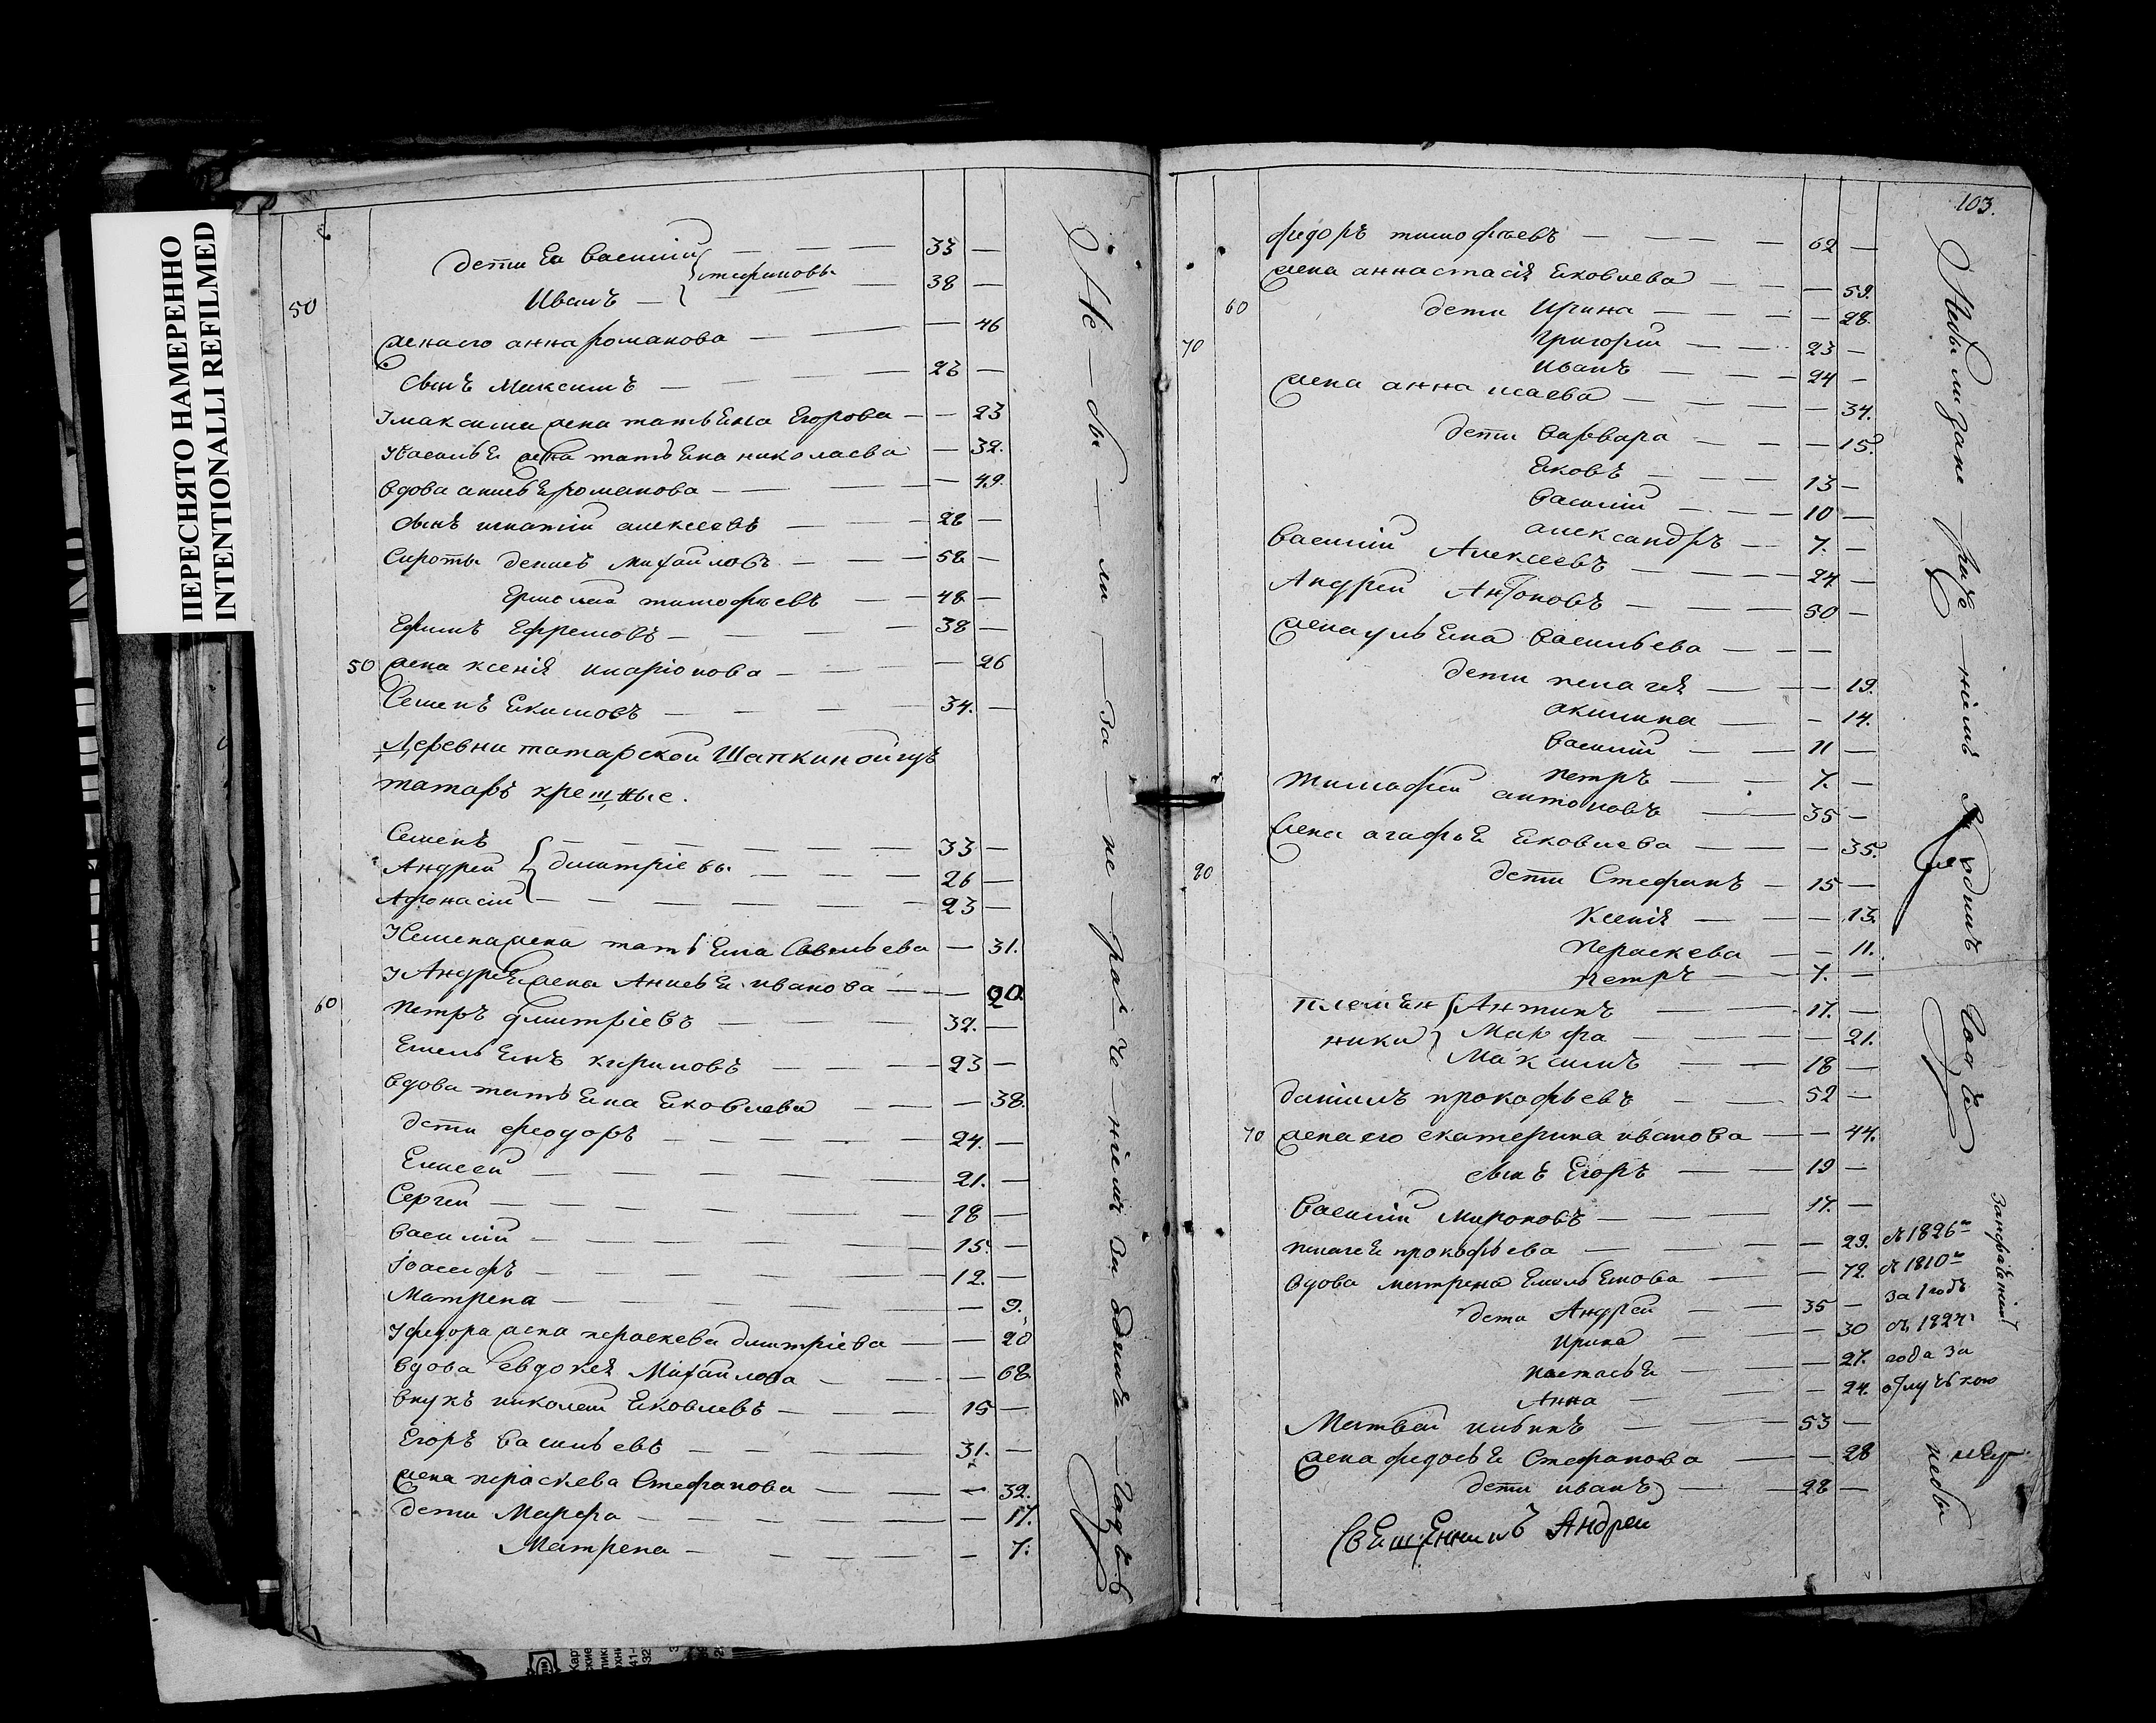 ПЕРЕСНЯТО НАМЕРЕННО
INTENTIONALLI REFILMED
дети Ея Василий — 33 —
50 Иванъ — 38 —
жена его анна романова — — 46
Сынъ Максимъ — 23 —
У максима жена татьЕна Егорова — — 23
У василья жена татьЕна николаева — 32.
вдова анисьЕ романова — — 49.
сынъ игнатий алексеевъ — 28 —
Сироты денисъ михайловъ — 58 —
Ермолай тимофъевъ — 48 —
Ефимъ Ефремовъ — 38 —
50 жена ксения иларіонова — — 26
Семенъ Екимовъ — 34. —
Деревни татарской Шапкиной изъ
татаръ крещные.
Семенъ — 33 —
Андрей } дмитріевы — 26 —
Афонасій — 23 —
У Семена жена татьЕна Савельева — 31.
У АндреЕ жена АнисьЕ иванова — — 20.
60 Петръ дмитріевъ — 32. —
ЕмельЕнъ кириловъ — 23 —
вдова татьЕна Ековлева — — 38.
дети феодоръ — 24. —
Елисей — 21. —
Сергей — 18 —
василий — 15. —
Іосифъ — 12. —
Матрена — — 9.
У федора жена параскева дмитріева — — 20
вдова евдокея Михайлова — — 68
внукъ николай Ековлевъ — 15 —
Егоръ васильевъ — 31. —
жена праскева Стефанова — — 32.
дети Марфа — — 17.
Матрена — — 7.
Не — бы — ли — за — не — ра — че — ніемъ за одинъ — годъ
103.
федоръ тимофъевъ — 62 —
жена аннастасія Ековлева — — 59.
60 дети Ирина — — 28.
70 Григорий — 23 —
иванъ — 24 —
жена анна исаева — — 34.
дети варвара — — 15.
Ековъ — 13 —
Василий — 10 —
александръ — 7. —
Василий Алексеевъ — 24 —
Андрей Антоновъ — 50 —
жена ульЕна васильева — —
дети пелагея — — 19.
акилина — — 14.
василий — 11 —
петръ — 7. —
Тимофей антоновъ — 35 —
жена агафьЕ Ековлева — — 35.
80 дети Стефанъ — 15 —
Ксения — — 13.
Пераскева — — 11.
петръ — 7. —
племЕн { Антипъ — 17. —
ники } Марфа — — 21.
Максимъ — 18 —
данилъ прокофьевъ — 52 —
70 жена его екатерина иванова — — 44.
сынъ Егоръ — 19 —
Василий Мироновъ — 17. —
пелагеЕ прокофьева — — 29. съ 1826
вдова матрена ЕмельЕнова — — 72. съ 1810
дети Андрей — 35 — за 1 годъ
Ирина — — 30 съ 1824
настасьЕ — — 27. года за
Анна — — 24. отлучкою
Матвей — 53 —
жена федосьЕ Стефанова — — 28
дети иванъ — 28 —
СвЕщЕнникъ Андрей
небы